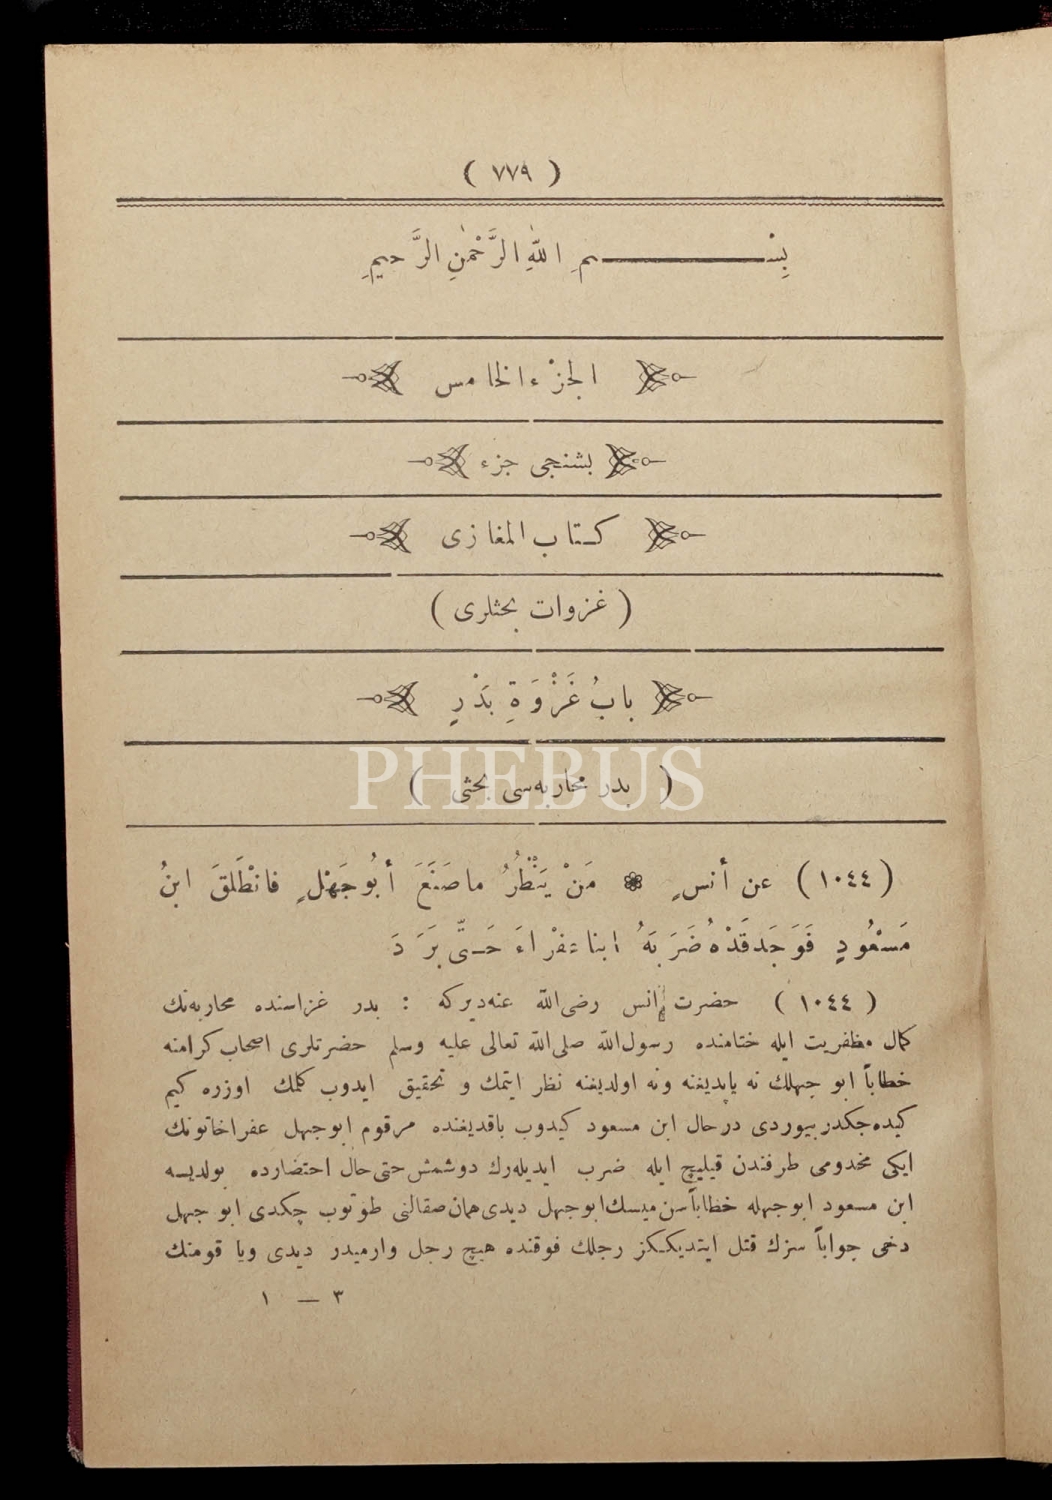 ( ٧٧٩ )
بِسْمِ اللّٰهِ الرَّحْمٰنِ الرَّحيمِ
الجزْء الخامس
بشنجى جزء
كتاب المغازى
( غزوات بحثلرى )
بابُ غَزْوَةِ بَدْرٍ
PHEBUS
( بدر محاربه‌سى بحثى )
( ١٠٤٤ ) عن أنسٍ ❁ مَنْ يَنْظُرُ ماصَنَعَ أبُوجَهْلٍ فانْطَلقَ ابنُ
مَسْعُودٍ فَوَجَدَ قَدْ ضَرَبَهُ ابنا عفْراءَ حَتَّى بَرَدَ
( ١٠٤٤ ) حضرت انس رضى‌اللّه عنه‌ديركه : بدر غزاسنده محاربه‌نك
كمال مظفريت ايله ختامنده رسول‌اللّه صلى‌اللّه تعالى عليه وسلم حضرتلرى اصحاب كرامنه
خطاباً ابو جهلك نه ياپديغنه ونه اولديغنه نظر ايتمك و تحقيق ايدوب كلمك اوزره كيم
كيده‌جكدر بيوردى درحال ابن مسعود كيدوب باقديغنده مرقوم ابوجهل عفراخاتونك
ايكى مخدومى طرفندن قيليچ ايله ضرب ايديله‌رك دوشمش‌حتى‌حال احتضارده بولديسه
ابن مسعود ابوجهله خطاباًسن‌ميسك‌ابوجهل ديدى‌همان‌صقالنى طوتوب چكدى ابو جهل
دخى جواباً سزك قتل ايتديككز رجلك فوقنده هيچ رجل وارميدر ديدى ويا قومنك
٣ — ١